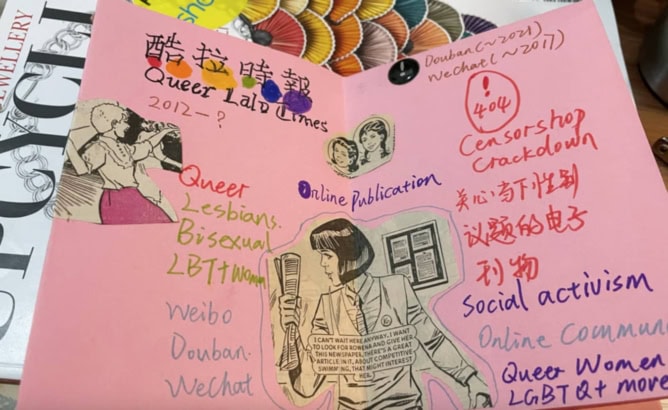 JEWELLERY
UPCYCLI
酷拉時報
Queer Lala Times
2012-?
Queer
Lesbians.
Bisexual
LBT+Women
Weibo
Douban.
Wechat
Douban(~2021)
WeChat(~2017)
!
404
Censorshop
Crackdown
Online Publication
关心当下性别
议题的电子
刊物
Social activism
Online Commun
Queer Women
LGBTQ+ more
I CAN'T WAIT HERE ANYWAY. I WANT
TO LOOK FOR ROWENA AND GIVE HER
THIS NEWSPAPER. THERE'S A GREAT
ARTICLE IN IT, ABOUT COMPETITIVE
SWIMMING, THAT MIGHT INTEREST
HER.